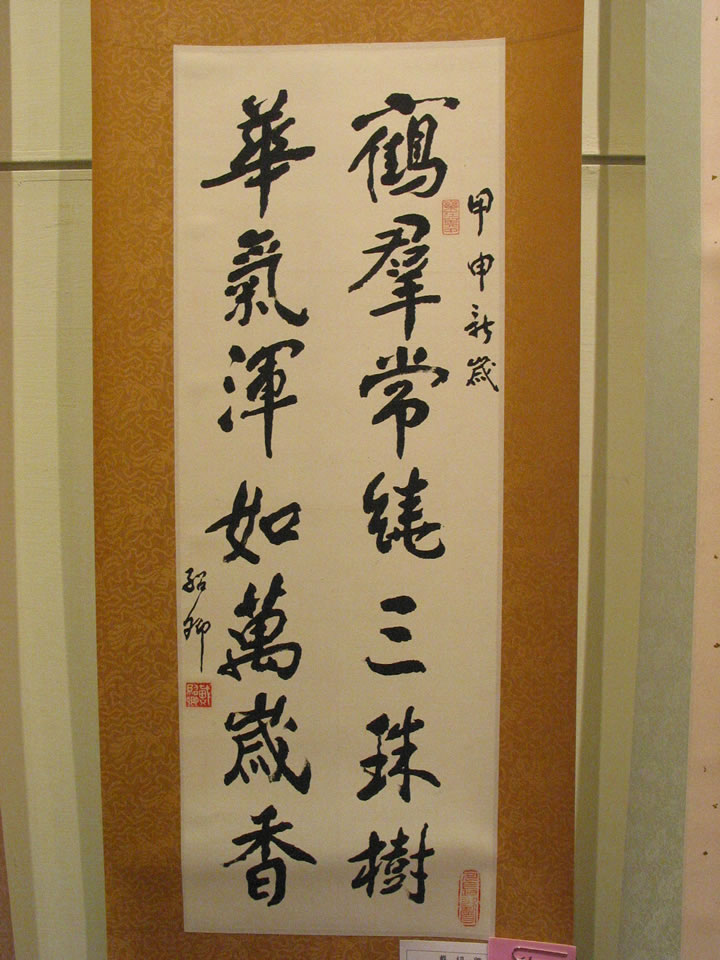 甲申新歲
鶴羣常繞三珠樹
華氣渾如萬歲香
紹卿